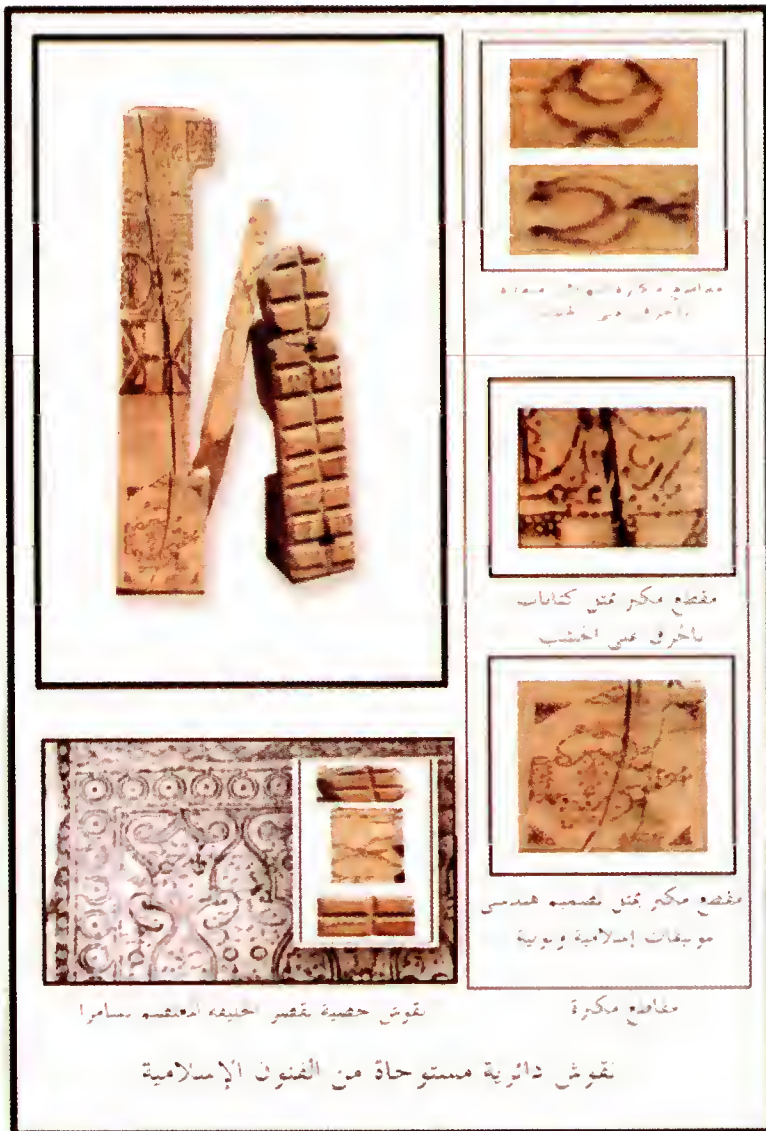 مقاطع مكبرة
بالحرق على الخشب
مقطع مكبر يمثل كتابات
بالحرق على الخشب
مقطع مكبر يمثل تصميم هندسى
إسلامية
مقاطع مكبرة
نقوش جصية بقصر الخليفة المعتصم بسامرا
نقوش دائرية مستوحاة من الفنون الإسلامية